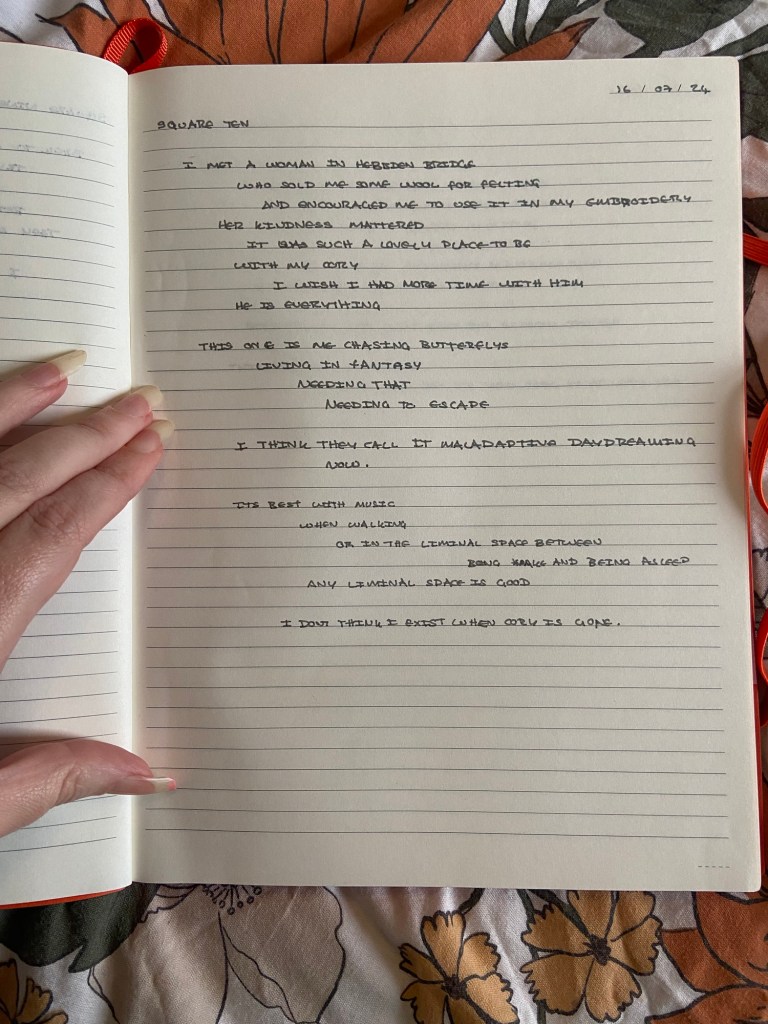 16 / 07 / 24
SQUARE TEN
I MET A WOMAN IN HEBBDEN BRIDGE
WHO SOLD ME SOME WOOL FOR FELTING
AND ENCOURAGED ME TO USE IT IN MY EMBROIDERY
HER KINDNESS MATTERED
IT WAS SUCH A LOVELY PLACE TO BE
WITH MY CORY
I WISH I HAD MORE TIME WITH HIM
HE IS EVERYTHING
THIS ONE IS ME CHASING BUTTERFLYS
LIVING IN FANTASY
NEEDING THAT
NEEDING TO ESCAPE
I THINK THEY CALL IT MALADAPTIVE DAYDREAMING
NOW.
ITS BEST WITH MUSIC
WHEN WALKING
OR IN THE LIMINAL SPACE BETWEEN
BEING AWAKE AND BEING ASLEEP
ANY LIMINAL SPACE IS GOOD
I DONT THINK I EXIST WHEN CORY IS GONE.